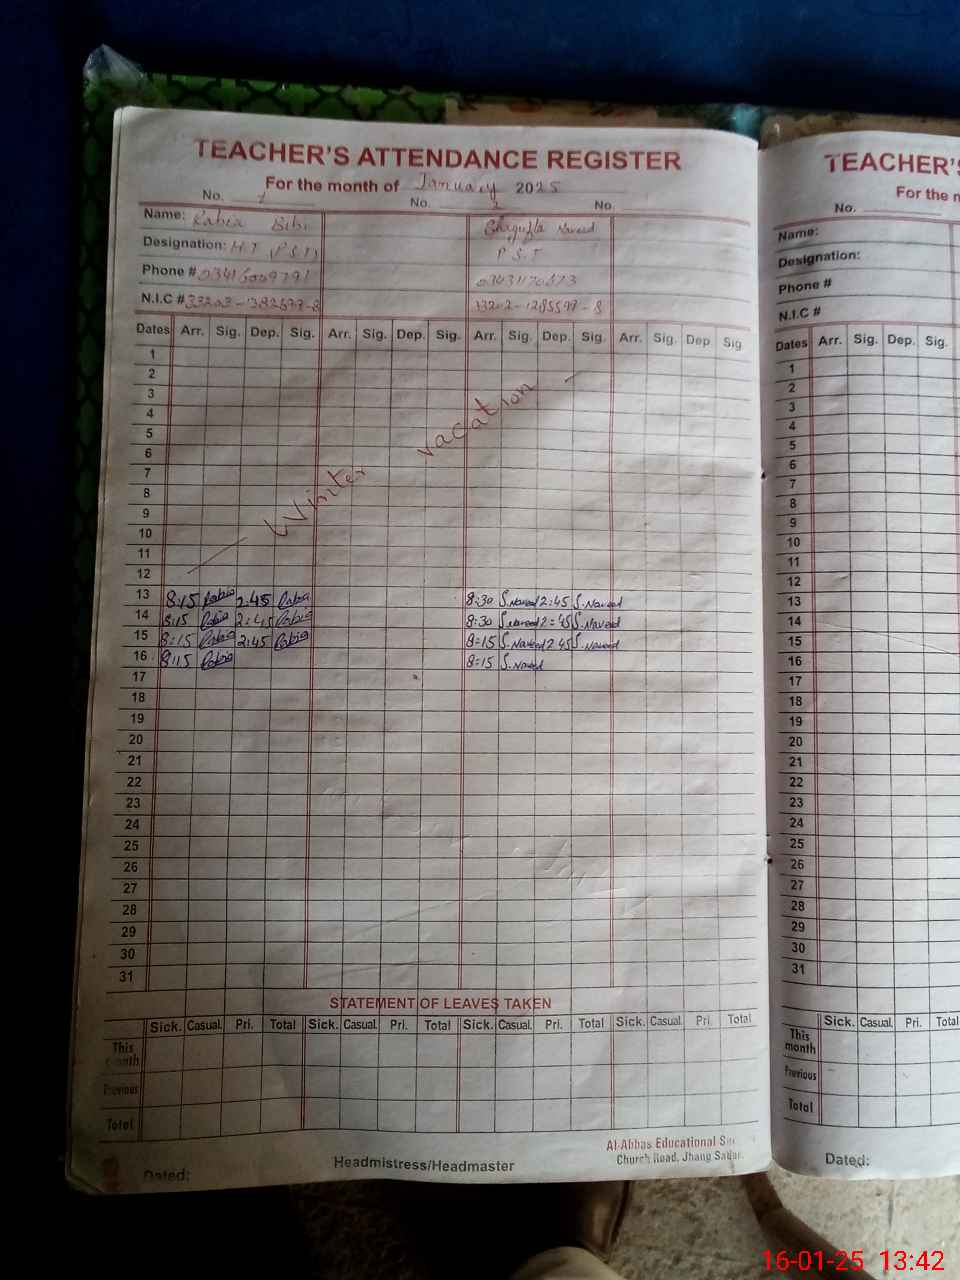 TEACHER'S ATTENDANCE REGISTER
For the month of January 2025
No. 1 No. 2 No.
Name: Rabia Bibi Shagufta Naveed
Designation: H.T (P.S.T) P.S.T
Phone #
N.I.C #
Dates Arr. Sig. Dep. Sig. Arr. Sig. Dep. Sig. Arr. Sig. Dep. Sig. Arr. Sig. Dep. Sig
1
2
3
4
5
6
7
8
9
10
11
12
Winter vacation
13 8:15 Rabia 2:45 Rabia 8:30 S.Naveed 2:45 S.Naveed
14 8:15 Rabia 2:45 Rabia 8:30 S.Naveed 2:45 S.Naveed
15 8:15 Rabia 2:45 Rabia 8:15 S.Naveed 2:45 S.Naveed
16 8:15 Rabia 8:15 S.Naveed
17
18
19
20
21
22
23
24
25
26
27
28
29
30
31
STATEMENT OF LEAVES TAKEN
Sick. Casual. Pri. Total Sick. Casual. Pri. Total Sick. Casual. Pri. Total Sick. Casual. Pri. Total
This month
Previous
Total
Dated:
Headmistress/Headmaster
Al-Abbas Educational
Church Road, Jhang Sadar.
TEACHER'S
For the m
No.
Name:
Designation:
Phone #
N.I.C #
Dates Arr. Sig. Dep. Sig.
1
2
3
4
5
6
7
8
9
10
11
12
13
14
15
16
17
18
19
20
21
22
23
24
25
26
27
28
29
30
31
Sick. Casual. Pri. Total
This month
Previous
Total
Dated:
16-01-25 13:42